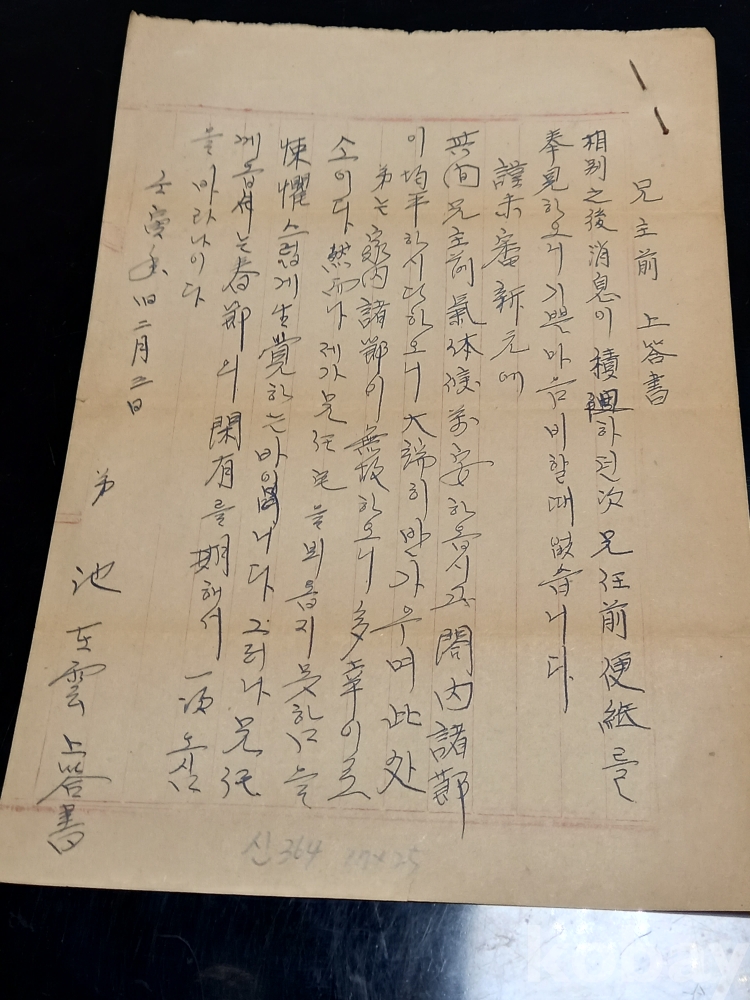 兄主前 上答書
相別之後 消息이 積阻하던次 兄任前 便紙를
奉見하오니 기쁜마음 비할때 없습니다
謹未審 新元에
其間 兄主前 氣体候 萬安하옵시고 閤內諸節
이 均平하시다하오니 大端히 반가우며 此处
弟는 家內諸節이 無故하오니 多幸이로
소이다 然而나 제가 兄任宅을 뵈옵지 못함을
悚懼스럽게 生覺하는바입니다 그러나 兄任
께옵서는 春節의 閑有를 期해서 一次 오심
을 바라나이다
壬寅年 旧二月二日
弟 池 在雲 上答書
신364 27×25